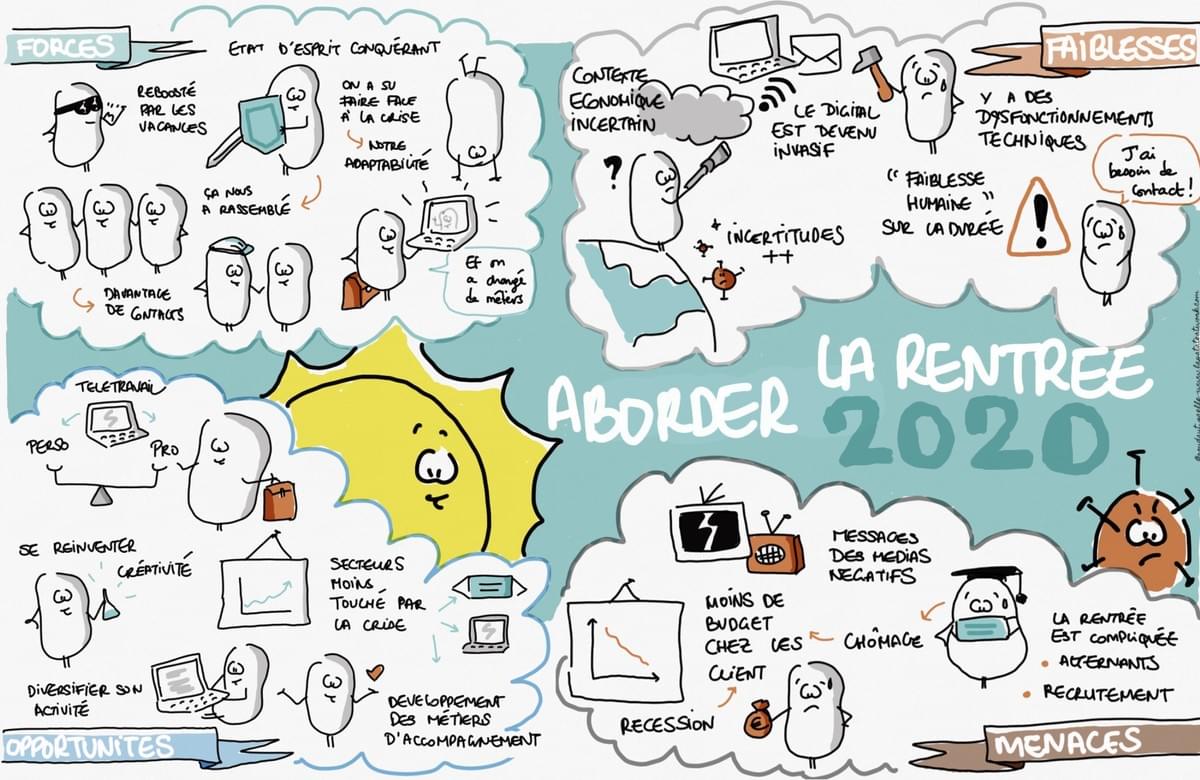 FORCES
ETAT D'ESPRIT CONQUÉRANT
REBOOSTÉ
PAR LES
VACANCES
ON A SU
FAIRE FACE
À LA CRISE
NOTRE
ADAPTABILITÉ
ÇA NOUS
A RASSEMBLÉ
DAVANTAGE
DE CONTACTS
Et on
a changé
de métiers
FAIBLESSES
CONTEXTE
ECONOMIQUE
INCERTAIN
?
LE DIGITAL
EST DEVENU
INVASIF
Y A DES
DYSFONCTIONNEMENTS
TECHNIQUES
J'ai
besoin de
contact!
“ FAIBLESSE
HUMAINE ”
SUR LA DURÉE
!
+ INCERTITUDES
++
ABORDER
LA RENTREE
2020
TELETRAVAIL
PERSO
PRO
SE REINVENTER
CRÉATIVITÉ
SECTEURS
MOINS
TOUCHÉ PAR
LA CRISE
DIVERSIFIER SON
ACTIVITÉ
DEVELOPPEMENT
DES MÉTIERS
D'ACCOMPAGNEMENT
OPPORTUNITES
MESSAGES
DES MEDIAS
NEGATIFS
MOINS DE
BUDGET
CHEZ LES
CLIENT
CHÔMAGE
RECESSION
LA RENTRÊE
EST COMPLIQUÉE
• ALTERNANTS
• RECRUTEMENT
MENACES